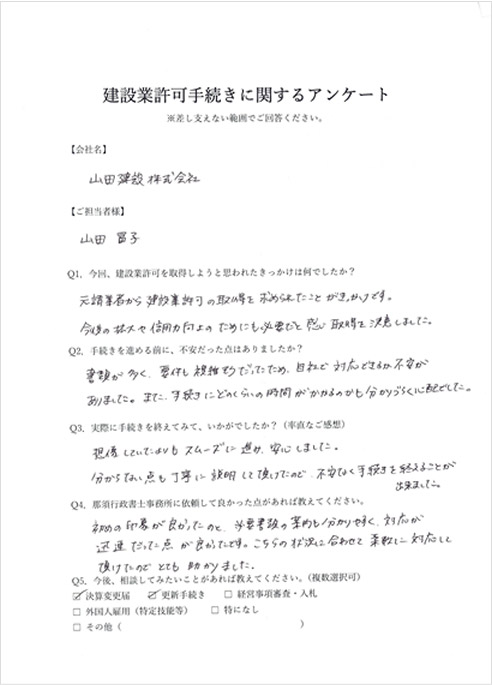 建設業許可手続きに関するアンケート
※差し支えない範囲でご回答ください。
【会社名】
山田建設株式会社
【ご担当者様】
山田 冨子
Q1. 今回、建設業許可を取得しようと思われたきっかけは何でしたか？
元請業者から建設業許可の取得を求められたことがきっかけです。
今後の拡大や信用力向上のためにも必要だと感じ取得を決意しました。
Q2. 手続きを進める前に、不安だった点はありましたか？
書類が多く、要件も複雑そうだったため、自社で対応できるか不安が
ありました。また、手続きにどのくらいの時間がかかるのかも分かりづらく心配でした。
Q3. 実際に手続きを終えてみて、いかがでしたか？（率直なご感想）
想像していたよりもスムーズに進み、安心しました。
分からない点も丁寧に説明して頂けたので、不安なく手続きを終えることが
出来ました。
Q4. 那須行政書士事務所に依頼して良かった点があれば教えてください。
初めの印象が良かったのと、必要書類の案内も分かりやすく、対応が
迅速だった点が良かったです。こちらの状況に合わせて柔軟に対応して
頂けたのでとても助かりました。
Q5. 今後、相談してみたいことがあれば教えてください。（複数選択可）
☑ 決算変更届 ☑ 更新手続き □ 経営事項審査・入札
□ 外国人雇用（特定技能等） □ 特になし
□ その他（ ）